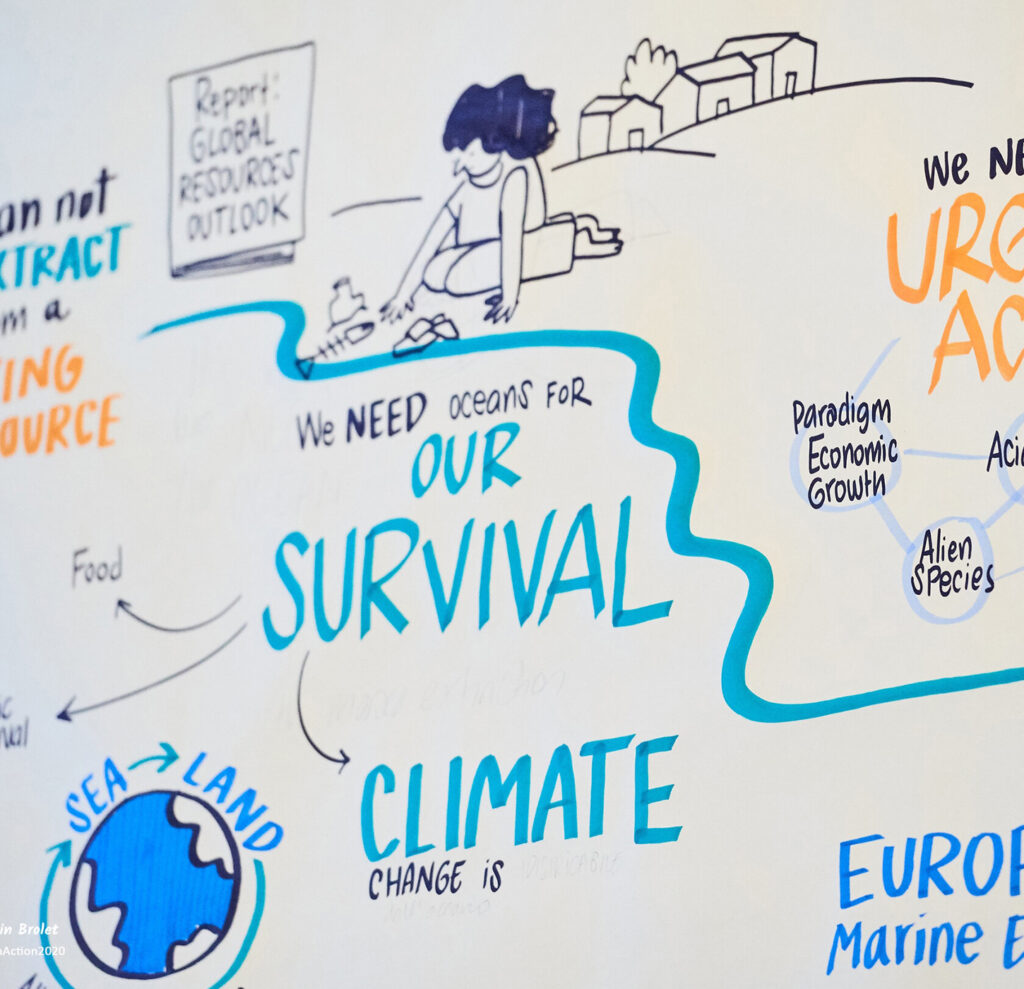 Report:
GLOBAL
RESOURCES
OUTLOOK
an not
XTRACT
m a
ING
OURCE
We NEED oceans FOR
OUR
SURVIVAL
Food
CLIMATE
CHANGE is
SEA LAND
We NE
URG
AC
Paradigm
Economic
Growth
Aci
Alien
Species
EUROP
Marine E
in Brolet
aAction2020